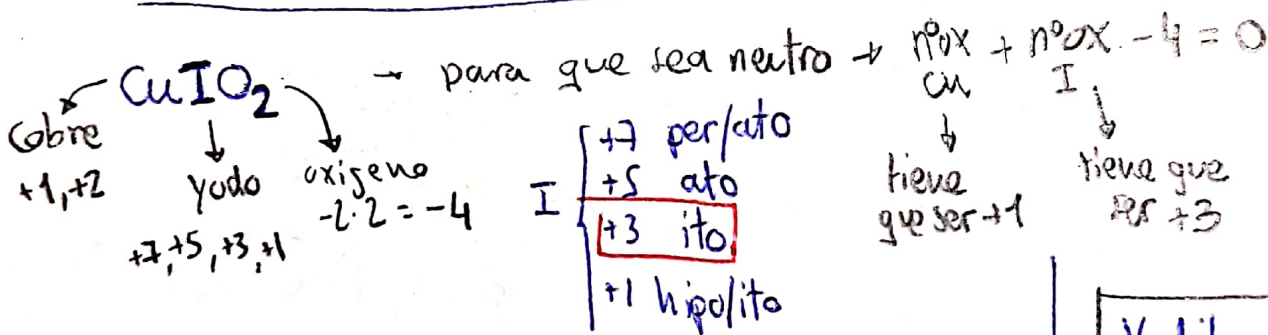 CuIO₂ → para que sea neutro → nºox + nºox - 4 = 0
Cu I
Cobre
+1, +2
yodo
+7, +5, +3, +1
oxigeno
-2·2 = -4
I
+7 per/ato
+5 ato
+3 ito
+1 hipo/ito
tiene
que ser +1
tiene que
ser +3